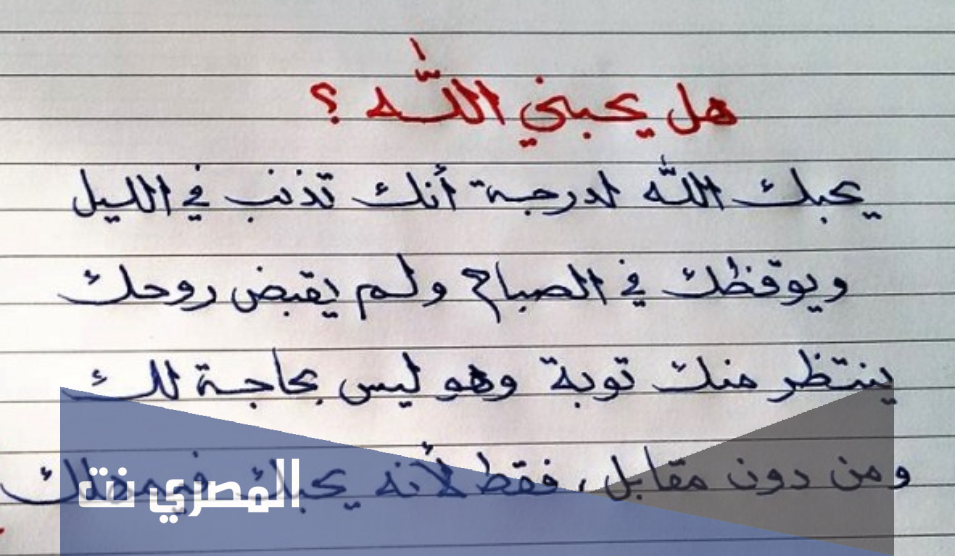 هل يحبني الله ؟
يحبك الله لدرجة أنك تذنب في الليل
ويوقظك في الصباح ولم يقبض روحك
ينتظر منك توبة وهو ليس بحاجة لك
ومن دون مقابل ، فقط لأنه يحبك فيمهلك
المصري نت